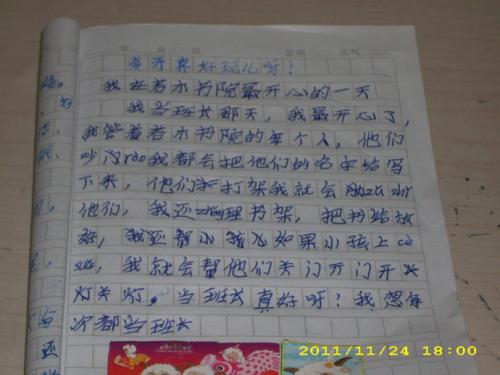 年 月 日 星期 天气
每天都好玩儿呀!
我在若水书院最开心的一天
我当班长那天，我最开心了，
我管着若水书院的每个人，他们
吵闹了我都会把他们的名字给写
下来，他们打架我就会阻zu zhi
他们，我还整理书架，把书给放
好，我还帮小孩儿如果小孩上cè
suǒ，我就会帮他们关门开门开
灯关灯，当班长真好呀?我想每
次都当班长
2011/11/24 18:00